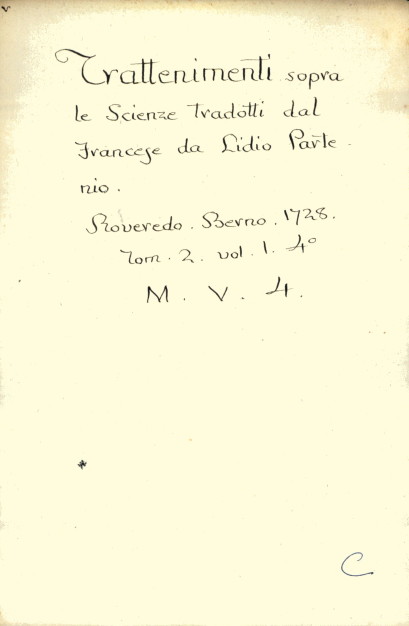 Trattenimenti sopra
le Scienze Tradotti dal
Francese da Lidio Parte
nio.
Roveredo. Berno. 1728.
Tom. 2. vol. 1. 4°
M. V. 4.
*
C